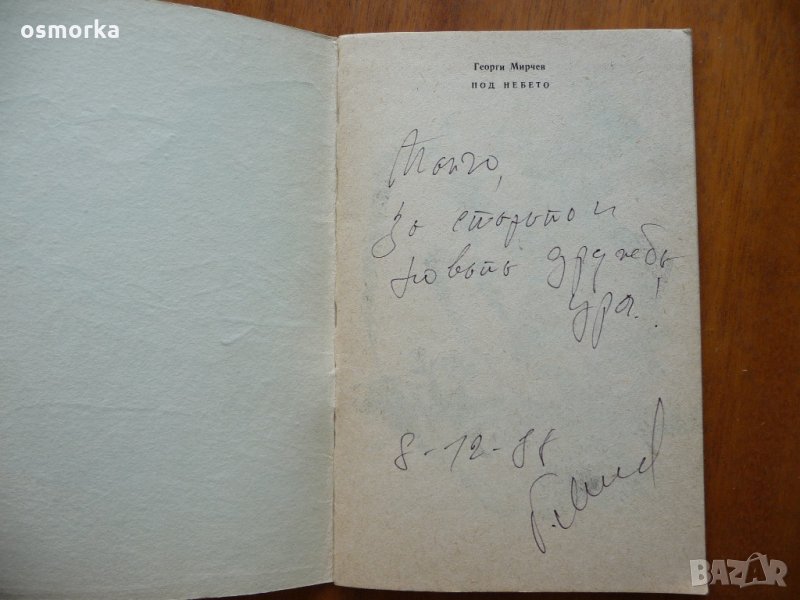 osmorka
Георги Мирчев
ПОД НЕБЕТО
За старата и
новата дружба
ура!
8-12-88
BAZAR